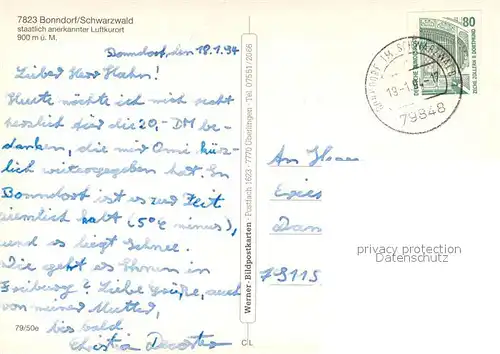 7823 Bonndorf/Schwarzwald
staatlich anerkannter Luftkurort
900 m ü. M.
Bonndorf, den 18.1.94
Lieber Herr Hahn!
Heute möchte ich mich recht
herzlich für die 20,- DM be-
danken, die mir Omi kürz-
lich weitergegeben hat. In
Bonndorf ist es zur Zeit
ziemlich kalt (5°C minus),
und es liegt Schnee.
Wie geht es Ihnen in
Freiburg? Liebe Grüße, auch
von meiner Mutter,
bis bald
Christia
79/50e
Werner-Bildpostkarten · Postfach 1623 · 7770 Überlingen · Tel. 07551/2066
C L
80
DEUTSCHE BUNDESPOST
ZECHE ZOLLERN II DORTMUND
BONNDORF IM SCHWARZWALD
79848
An Herrn
79115
privacy protection
Datenschutz